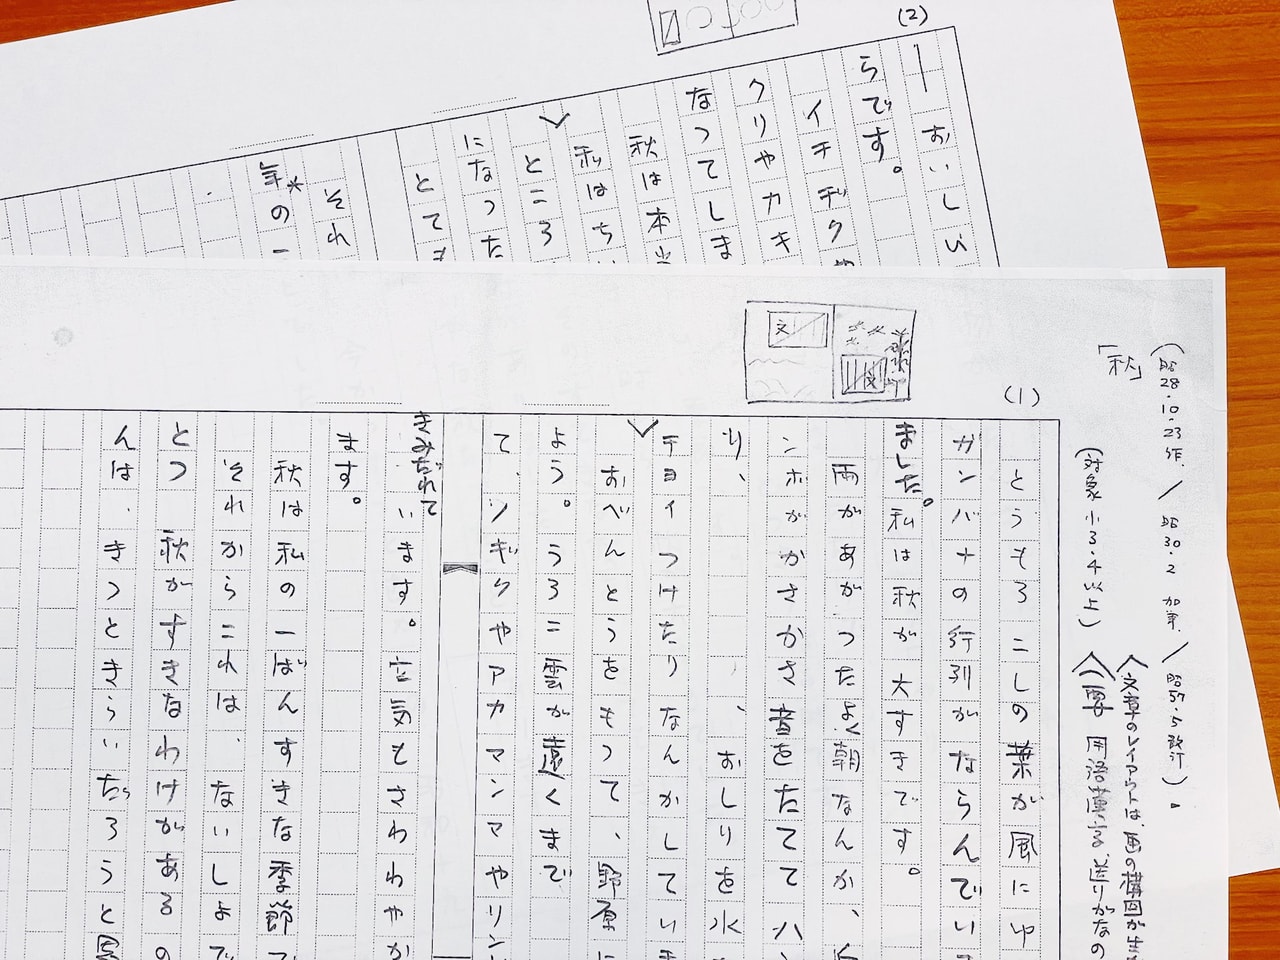 (2)
ー おいしい
らです。
イチヂクや
クリやカキ
なってしま
秋は本当
私はち
ところ
になった
とても
それ
年*の一
「秋」
(昭28.10.23作. / 昭30.2 加筆. / 昭57.5 改訂)
(対象 小3.4以上)
文章のレイアウトは、画の構図が
用語漢字、送りがなの
(1)
とうもろこしの葉が風にゆ
ガンバナの行列がならんでい
ました。私は秋が大すきです。
雨があがったよく朝なんか、
ンボがかさかさ音をたててハ
り、、おしりを水
チョイつけたりなんかしていま
おべんとうをもって、野原に
よう。うろこ雲が遠くまで
て、ノギクやアカマンマやリン
きみだれて
います。空気もさわやか
ます。
秋は私の一ばんすきな季節で
それからこれは、ないしょで
とつ 秋がすきなわけがあるの
んは、きっときらいだろうと思
文
文